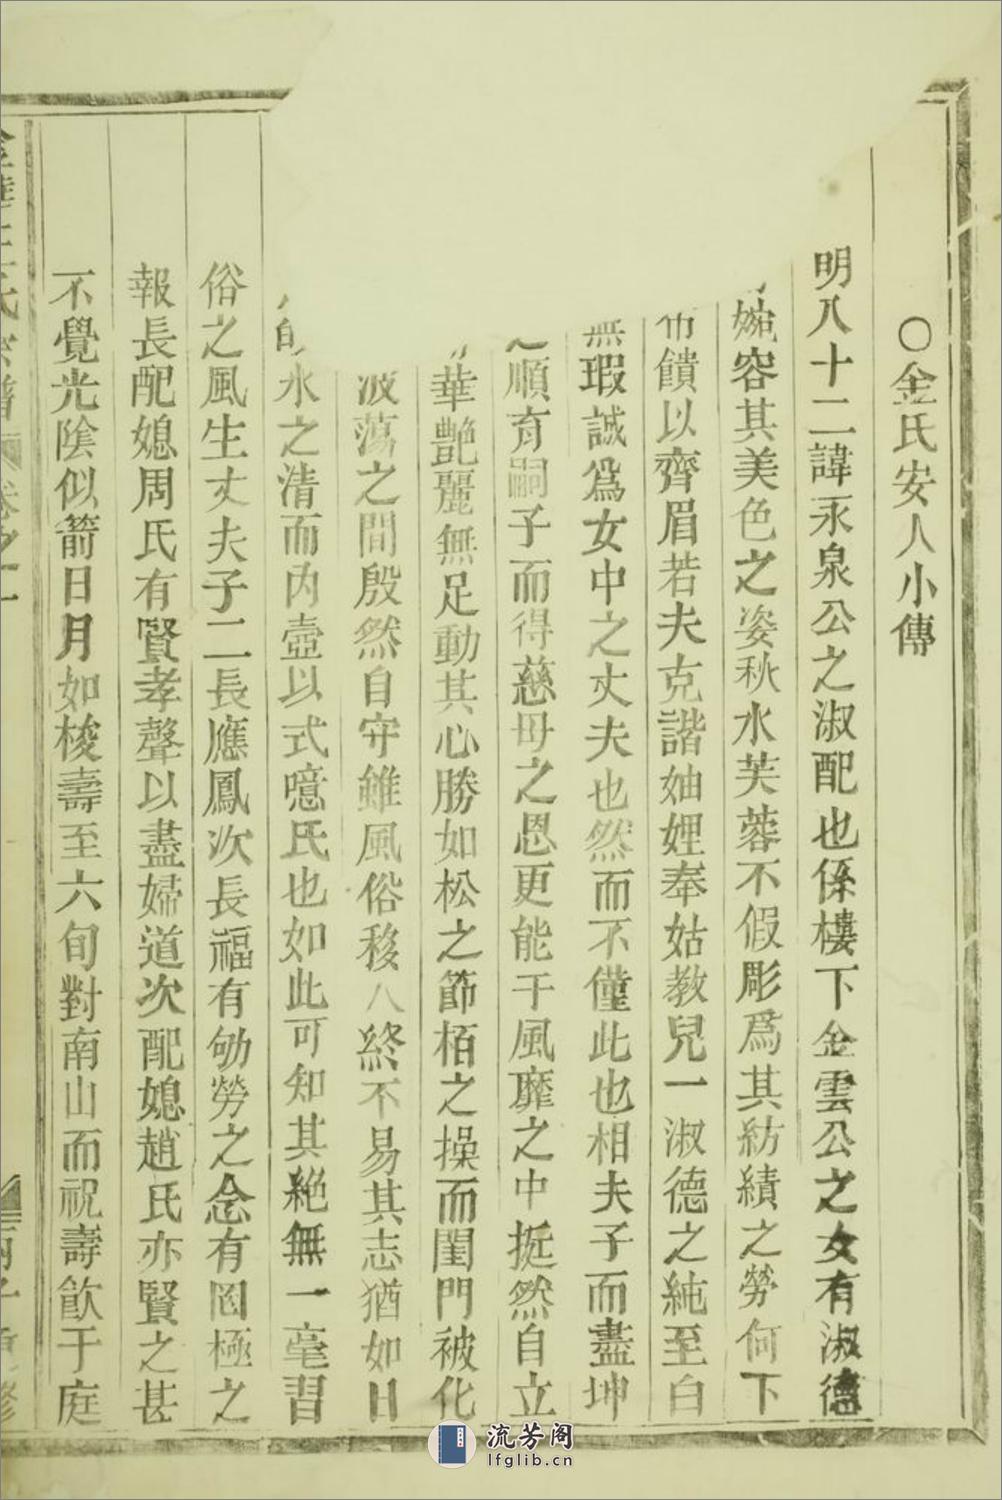 ○金氏安人小傳
明八十二諱永泉公之淑配也係樓下金雲公之女有淑德
婉容其美色之姿秋水芙蓉不假彫爲其紡績之勞何下
布饋以齊眉若夫克諧妯娌奉姑教兒一淑德之純至白
無瑕誠爲女中之丈夫也然而不僅此也相夫子而盡坤
之順育嗣子而得慈母之恩更能于風靡之中挺然自立
華艷麗無足動其心勝如松之節栢之操而閨門被化
波蕩之間殷然自守雖風俗移人終不易其志猶如日
永之清而内壼以式噫氏也如此可知其絶無一毫習
俗之風生丈夫子二長應鳳次長福有劬勞之念有罔極之
報長配媳周氏有賢孝聲以盡婦道次配媳趙氏亦賢之甚
不覺光陰似箭日月如梭壽至六旬對南山而祝壽飲于庭
氏宗譜 卷之一 重修
流芳阁
lfglib.cn